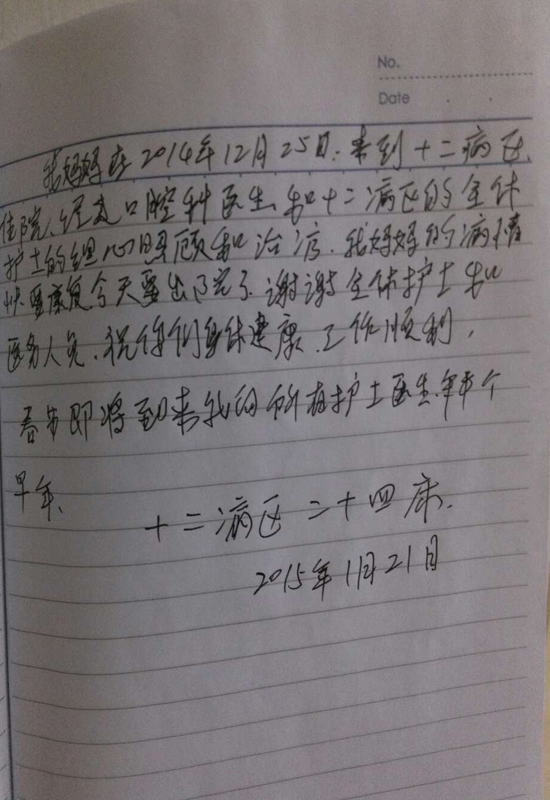 No.
Date
我妈妈在2014年12月25日.来到十二病区
住院、经过口腔科医生和十二病区的全体
护士的细心照顾和治疗.我妈妈的病情
快要康复今天要出院了.谢谢全体护士和
医务人员、祝你们身体建康.工作顺利,
春节即将到来我的所有护士医生拜个
早年、
十二病区二十四床.
2015年1月21日